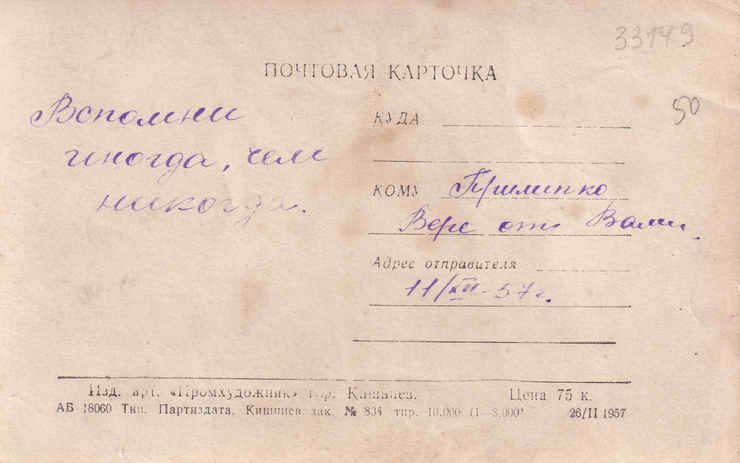 33149
ПОЧТОВАЯ КАРТОЧКА
50
Вспомни
иногда, чем
никогда.
КУДА
КОМУ Прилипко
Вере от Вали.
Адрес отправителя
11/XII-57г.
Изд. арт. «Промхудожник» гор. Кишинев. Цена 75 к.
АБ 18060 Тип. Партиздата, Кишинев зак. № 834 тир. 10.000 (1—3,000) 26/II 1957